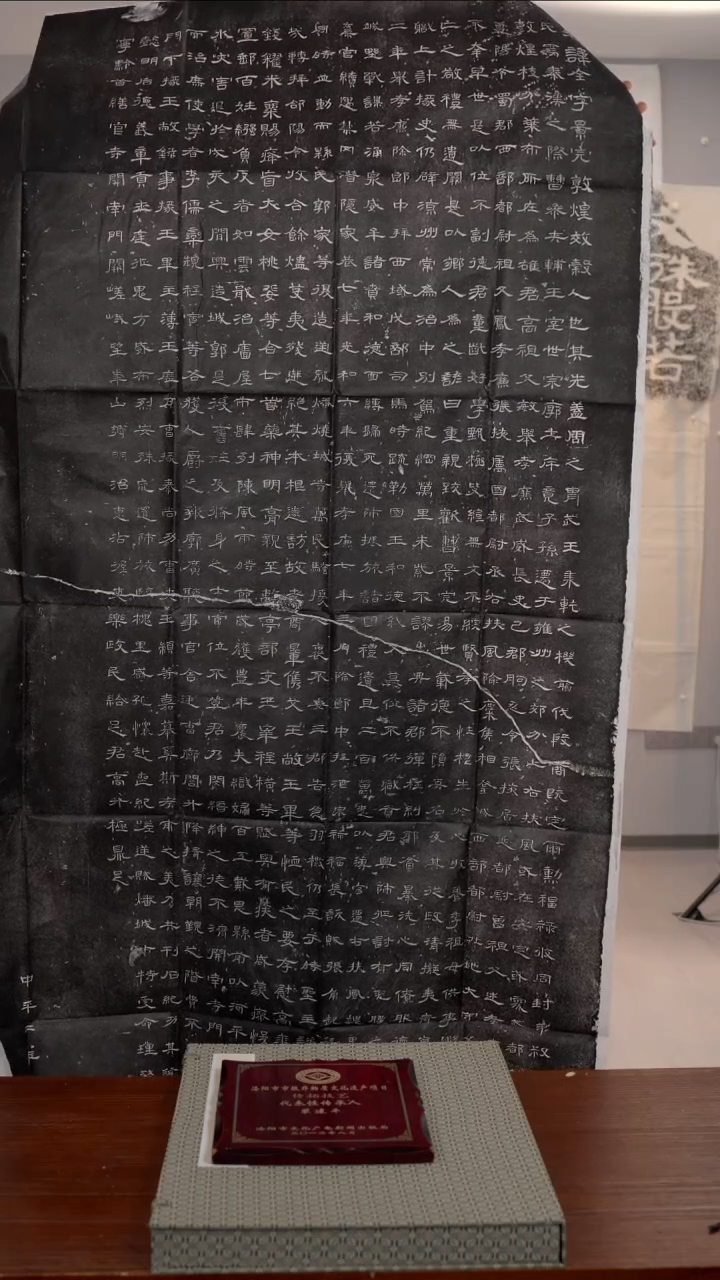 諱全字景完敦煌效穀人也其先蓋周之冑武王秉乾之機翦伐殷商既定爾勳福祿攸同封弟叔
氏焉秦漢之際曹參夾輔王室世宗廓土斥竟子孫遷于雍州之郊分止右扶風或在安定或處武都
敦煌枝分葉布所在為雄君高祖父敏舉孝廉武威長史巴郡朐忍令張掖居延都尉曾祖父述孝
夏陽令蜀郡西部都尉祖父鳳孝廉張掖屬國都尉丞右扶風隃麋侯相金城西部都尉北地大守
不幸早世是以位不副德君童齔好學甄極毖緯無文不綜賢孝之性根生於心收養季祖母供事繼
亡之敬禮無遺闕是以鄉人為之諺曰重親致歡曹景完易世載德不隕其名及其從政清擬夷齊直
職上計掾史仍辟涼州常為治中別駕紀綱萬里朱紫不謬出典諸郡彈枉糾邪貪暴洗心同僚服德
二年舉孝廉除郎中拜西域戊部司馬時疏勒國王和德弒父篡位不供職貢君興師征討有兗膿之
城野戰謀若涌泉威牟諸賁和德面縛歸死還師振旅諸國禮遺且二百萬悉以薄官遷右扶風槐里
棄官續遇禁冈潛隱家巷七年光和六年復舉孝廉七年三月除郎中拜酒泉祿福長訞賊張角起
同時並動而縣民郭家等復造逆亂燔燒城寺萬民騷擾人裹不安三郡告急羽檄仍至于時聖主
攻轉拜郃陽令收合餘燼芟夷殘迸絕其本根遂訪故老商量儁艾王敞王畢等恤民之要存慰高年
錢糴米粟賜癃盲大女桃斐等合七首藥神明膏親至離亭部吏王宰程橫等賦與有疾者咸蒙瘳悛
置郵百姓繦負反者如雲戢治廧屋市肆列陳風雨時節歲獲豐年農夫織婦百工戴恩縣前以河平
水災害退於戌亥之間興造城郭是後舊姓及脩身之士官位不登君乃閔縉紳之徒不濟開南寺門
而治庶使學者李儒欒規程寅等各獲人爵之報廓廣聽事官舍廷曹廊閤升降揖讓朝覲之階費不
門下掾王敞錄事掾王畢主簿王歷戶曹掾秦尚功曹史王顓等嘉慕奚斯考甫之美乃共刊石紀功其辭
懿明后德義章貢王庭征鬼方威布烈安殊荒還師旅臨槐里感孔懷赴喪紀嗟逆賊燔城市特受命理殘
寧黔首繕官寺開南門闕嵯峨望華山鄉明治惠沾渥吏樂政民給足君高升極鼎足
中平二年
殊般若
洛阳市市级非物质文化遗产项目
传拓技艺
代表性传承人
洛阳市文化广电新闻出版局